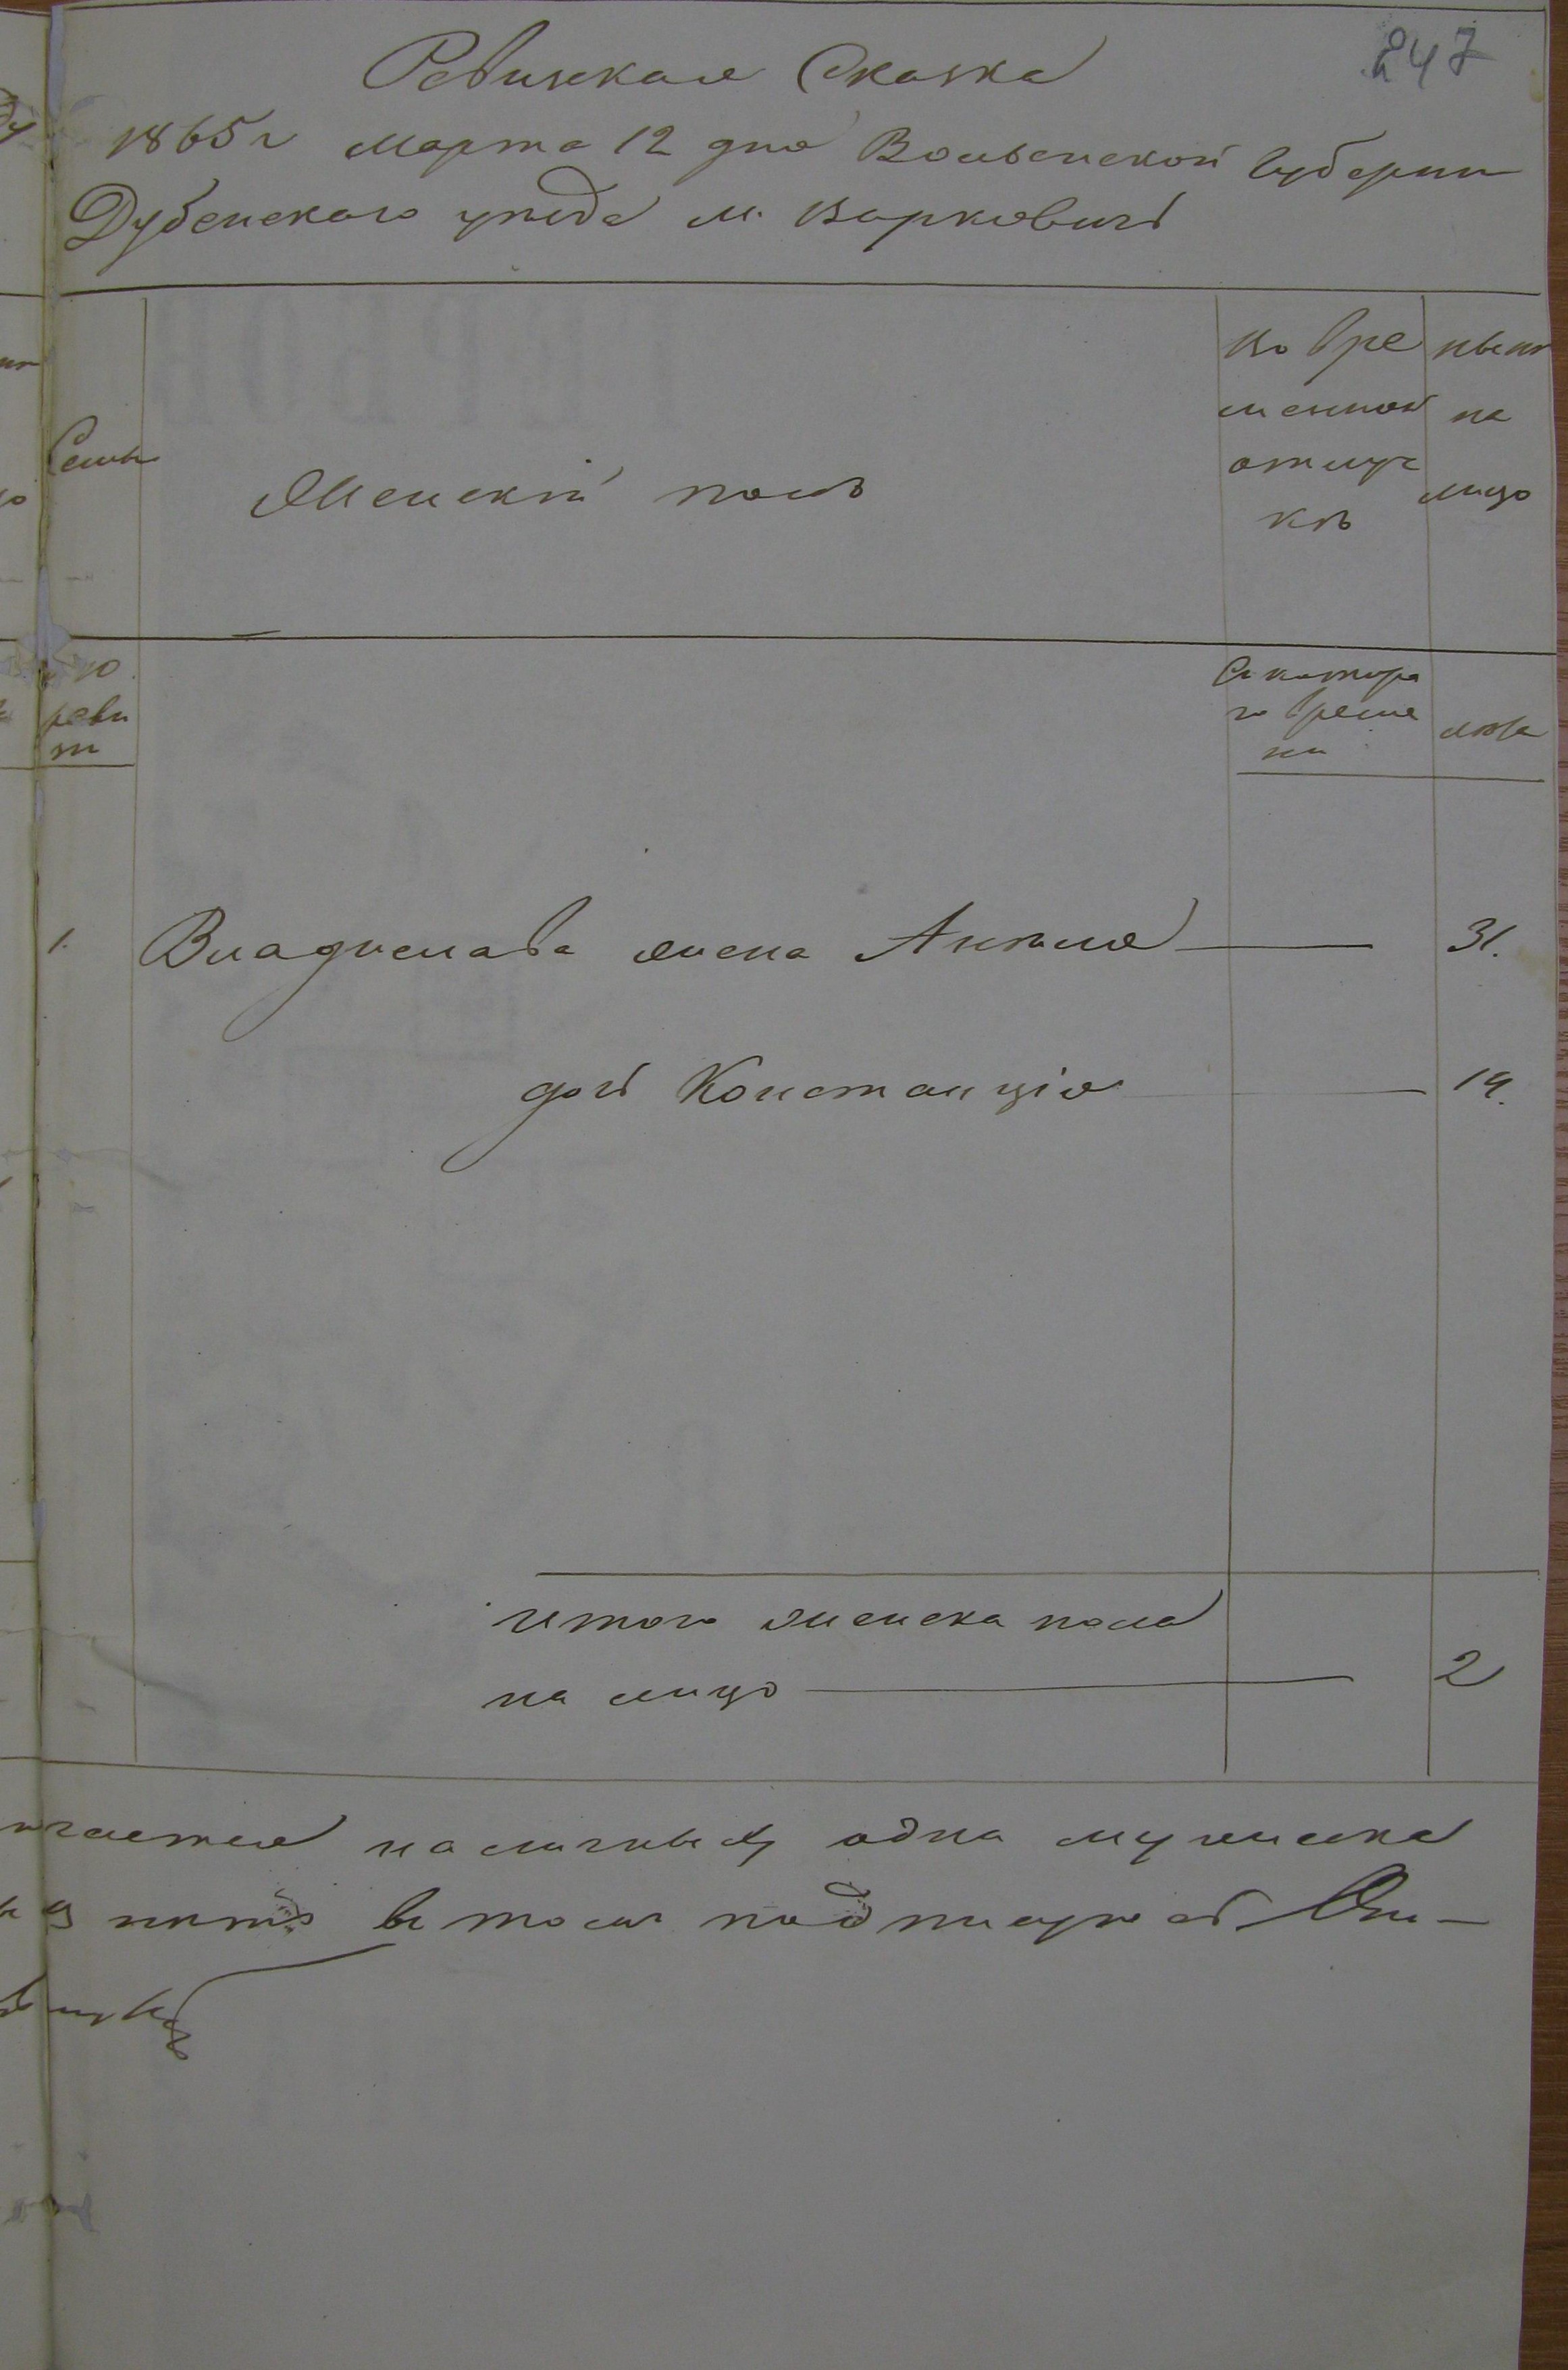 247
Ревизская Сказка
1865 г Марта 12 дня Волынской Губернии
Дубенского уезда м. Варковичь
Семьи
Женскій полъ
Во вре
менной
отлуч
кѣ
ныне
на
лицо
10
реви
зіи
Съ котора
го време
ни
лѣта
1. Владислава жена Анеля 31.
дочь Констанція 14.
итого женска пола
на лицо 2
наличныхъ одна мужеска
въ томъ подписуюсь